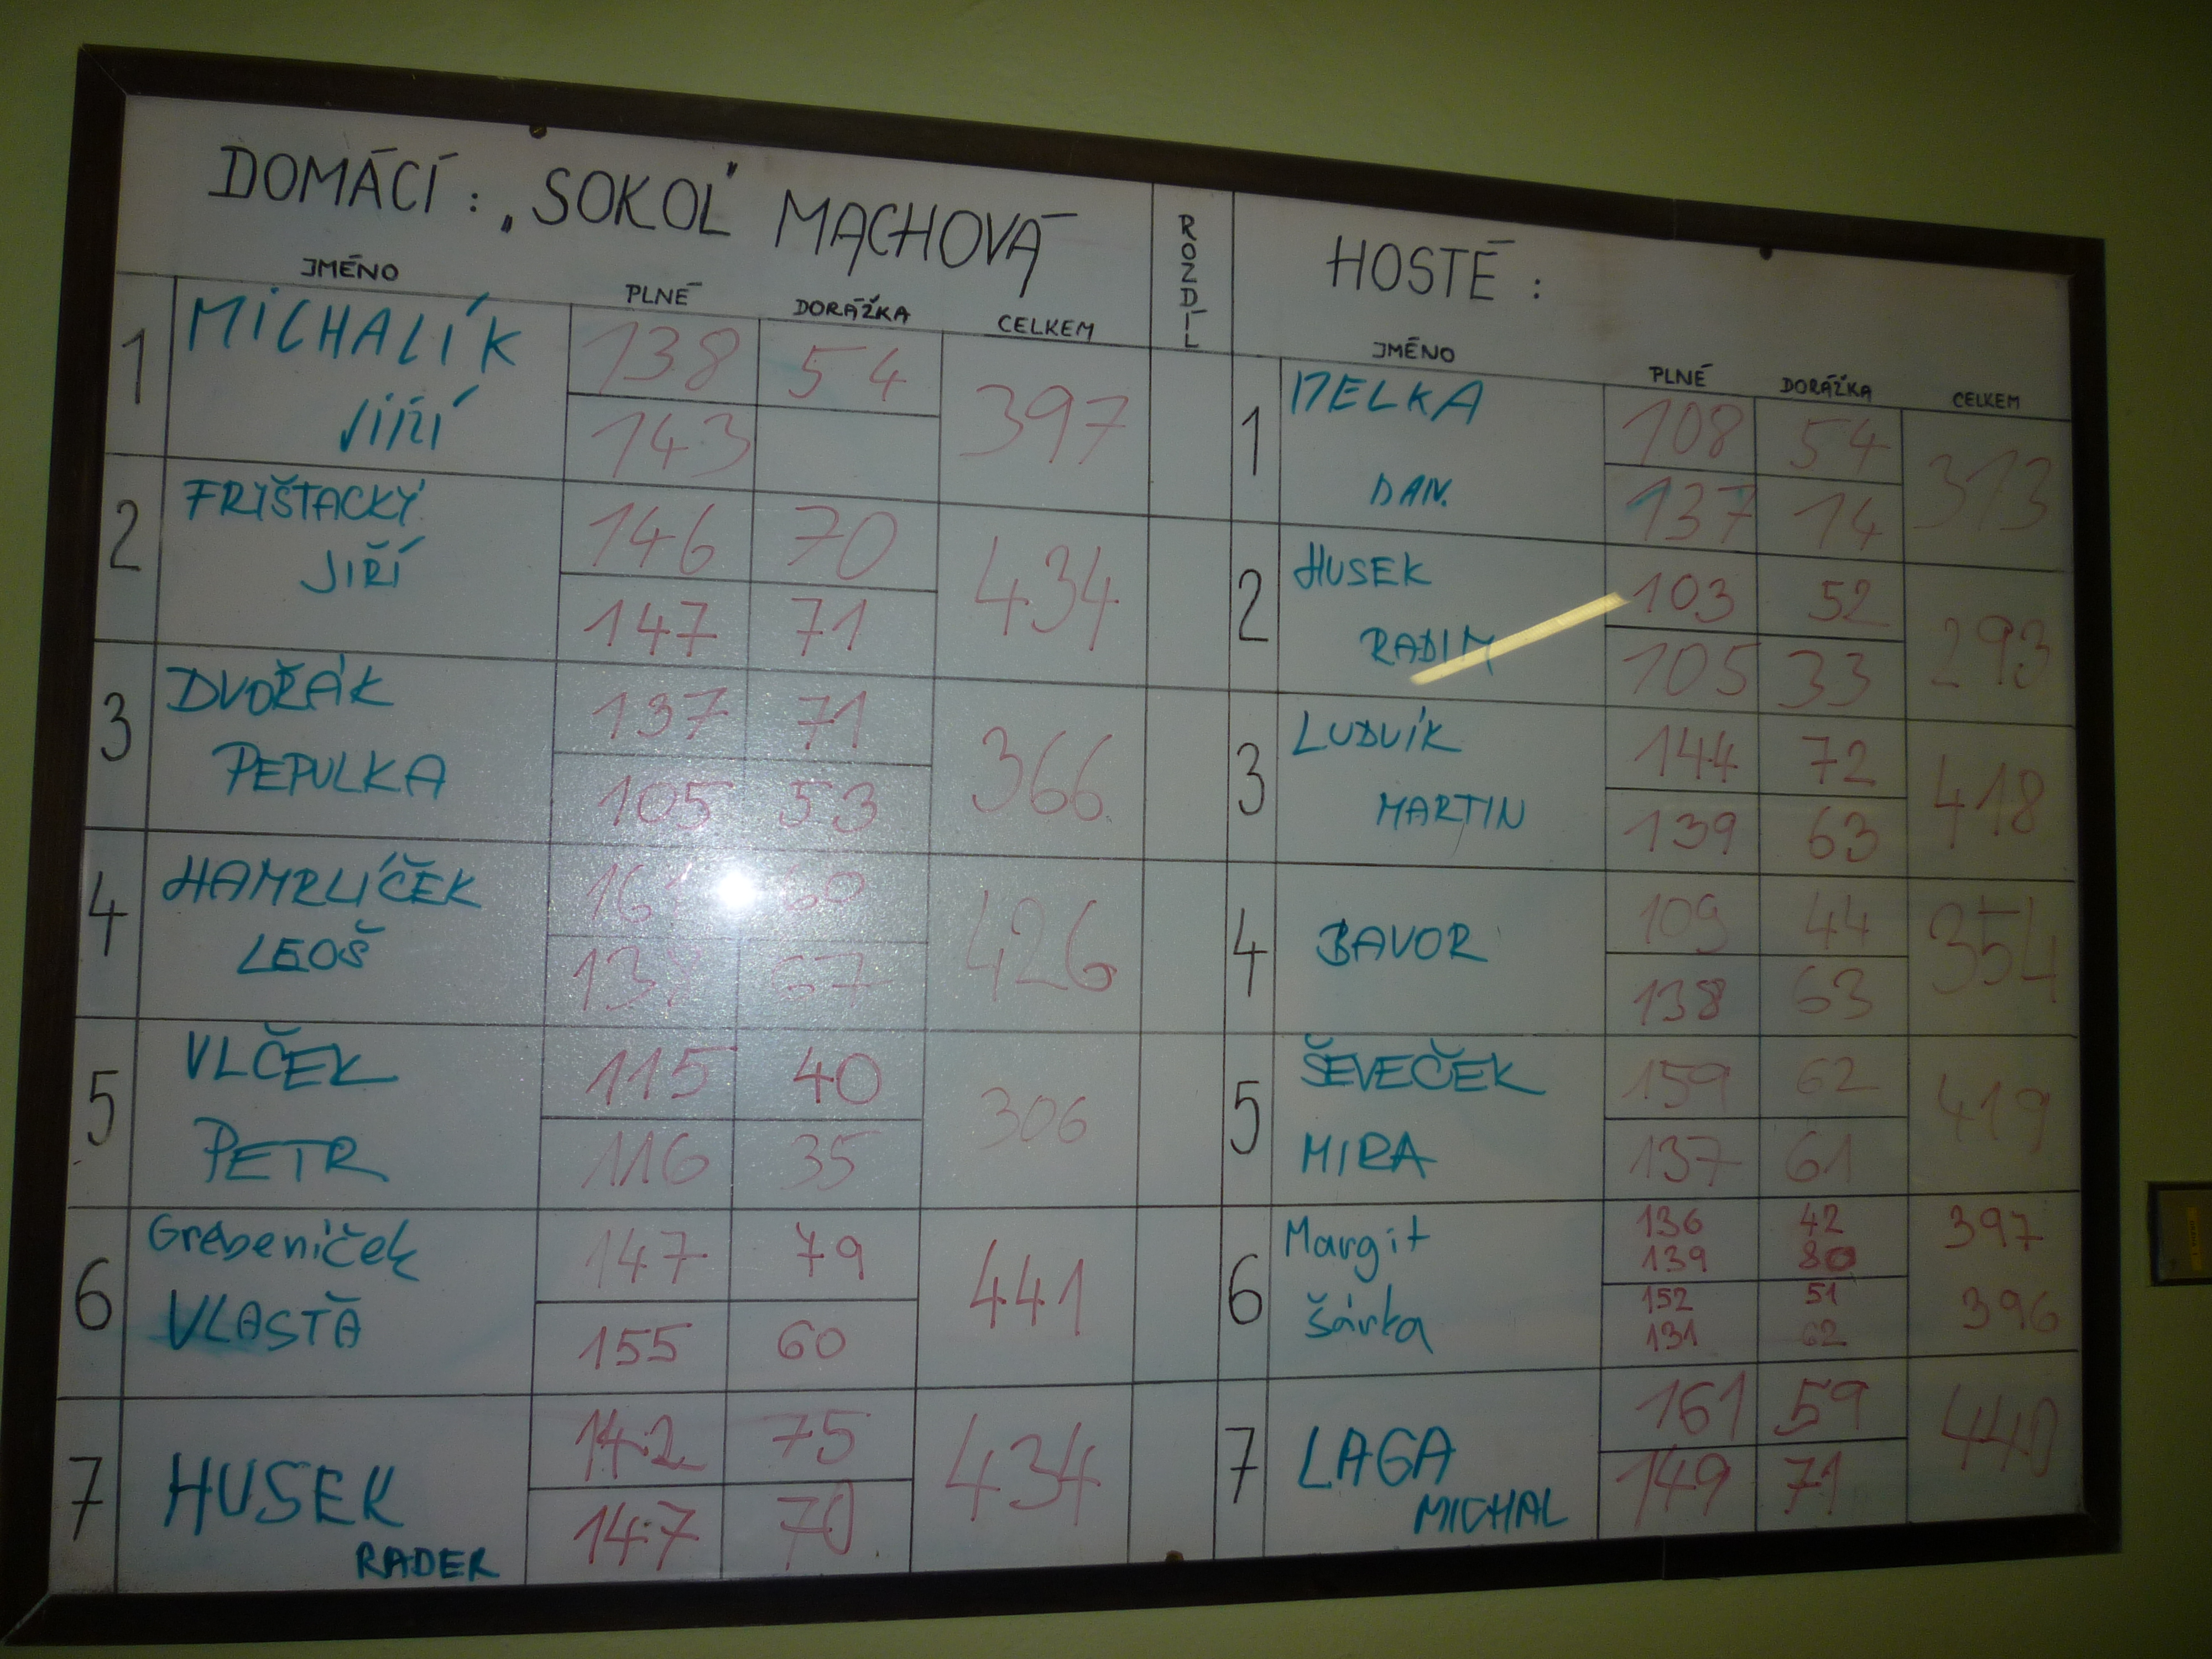 DOMÁCÍ: „SOKOL" MACHOVÁ
JMÉNO PLNÉ DORÁŽKA CELKEM
1 MICHALÍK JIŘÍ 138 54 397
143
2 FRIŠTACKÝ JIŘÍ 146 70 434
147 71
3 DVOŘÁK PEPULKA 137 71 366
105 53
4 HAMRLÍČEK LEOŠ 60 426
67
5 VLČEK PETR 115 40 306
116 35
6 Grebeníček VLASTA 147 79 441
155 60
7 HUSEK RADER 142 75 434
147 70
ROZDÍL
HOSTÉ:
JMÉNO PLNÉ DORÁŽKA CELKEM
1 DAN. 108 54 313
137 14
2 HUSEK RADIM 103 52 293
105 33
3 LUDVÍK MARTIN 144 72 418
139 63
4 BAVOR 109 44 354
138 63
5 ŠEVEČEK MIRA 159 62 419
137 61
6 Margit 136 42 397
139 80
Šárka 152 51 396
131 62
7 LAGA MICHAL 161 59 440
149 71